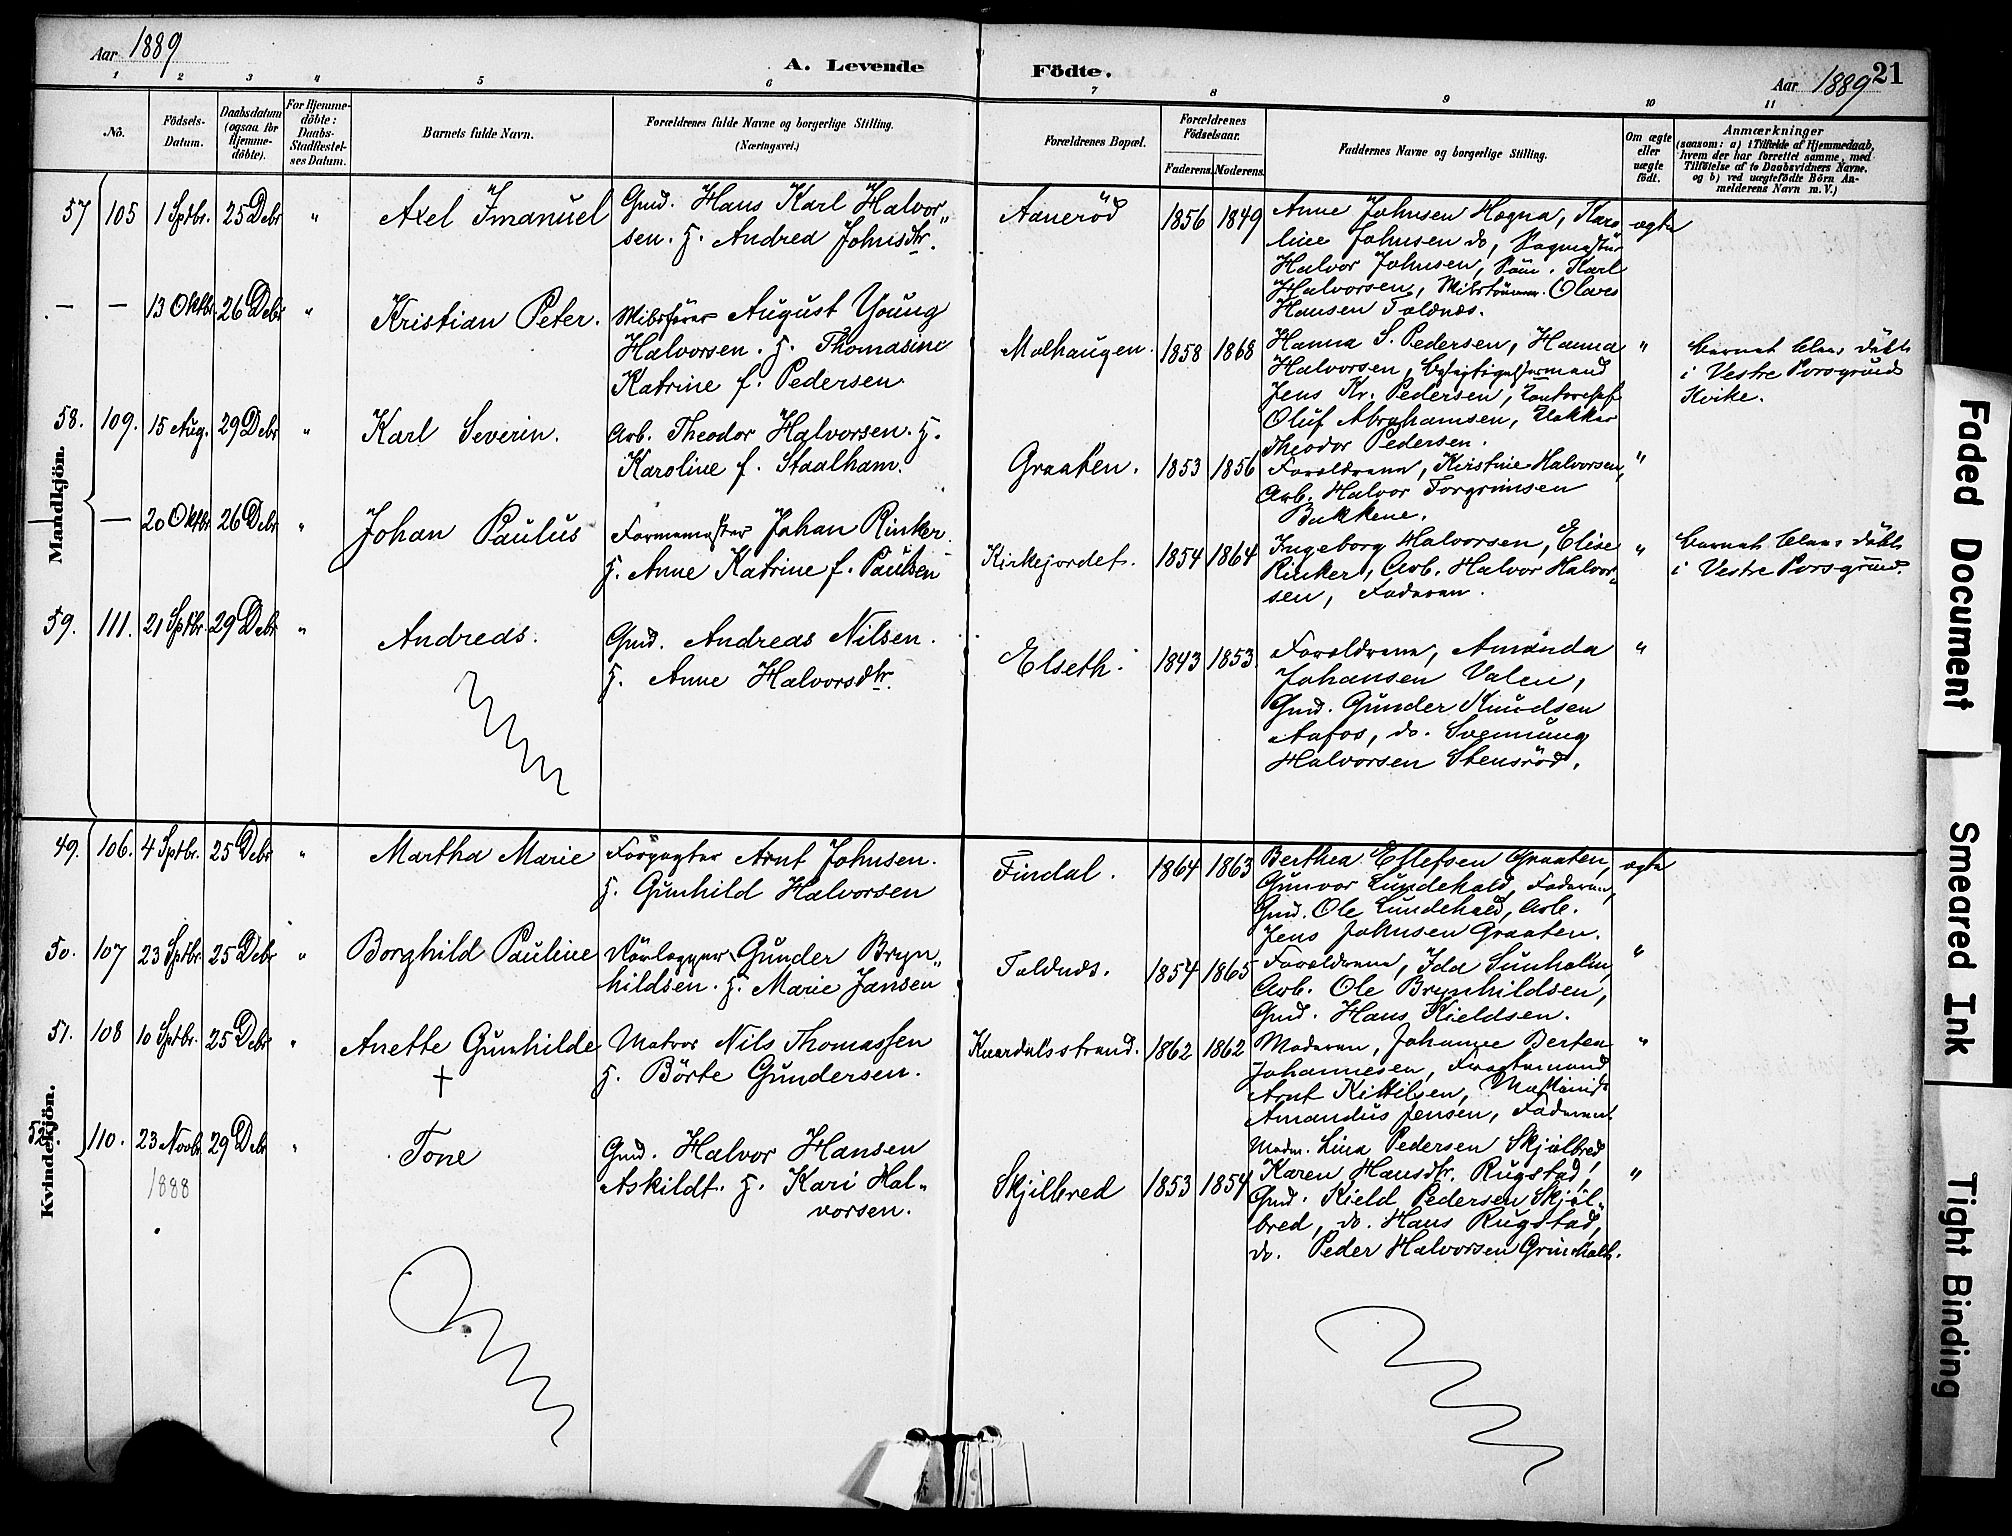 Aar 1889
A. Levende Födte.
Aar 1889
21
1 2 3 4 5 6 7 8 9 10 11
No.
Födsels-
Datum.
Daabsdatum
(ogsaa for
Hjemme-
döbte).
For Hjemme-
döbte:
Daabs-
Stadfæstel-
ses Datum.
Barnets fulde Navn.
Forældrenes fulde Navne og borgerlige Stilling.
(Næringsvei.)
Forældrenes Bopæl.
Forældrenes
Födselsaar.
Faderens. Moderens.
Faddernes Navne og borgerlige Stilling.
Om ægte
eller
uægte
födt.
Anmærkninger
(saasom: a) i Tilfælde af Hjemmedaab,
hvem der har forrettet samme, med
Tilföielse af to Daabsvidners Navne,
og b) ved uægtefödte Börn An-
melderens Navn m. V.)
Mandkjön.
57 105 1 Sptbr. 25 Debr " Axel Imanuel
Gmd. Hans Karl Halvor„
sen. H. Andrea Johnsdtr.
Aanerød 1856 1849
Anne Johnsen Hogna, Karo
line Johnsen do,
Halvor Johnsen, Karl
Halvorsen, Olaves
Hansen Toldnæs.
ægte
— — 13 Oktbr. 26 Debr " Kristian Peter.
August Young
Halvorsen. H. Thomasine
Katrine f. Pedersen
Molhaugen. 1858 1868
Hanna S. Pedersen, Hanna
Halvorsen,
Jens Kr. Pedersen,
Oluf Abrahamsen,
Theodor Pedersen.
"
Barnet blev döbt
i Vestre Porsgrunds
Kirke.
58. 109. 15 Aug. 29 Debr " Karl Severin.
Arb. Theodor Halvorsen. H.
Karoline f. Staalham.
Graaten. 1853 1856
Forældrene, Kirstine Halvorsen,
Arb. Halvor Torgrimsen
Bakkene.
"
— — 20 Oktbr 26 Debr " Johan Paulus
Formemester Johan Rinker
H. Anne Katrine f. Paulsen
Kirkejordet. 1854 1864
Ingeborg Halvorsen, Elise
Rinker, Arb. Halvor Halvor-
sen, Faderen.
"
Barnet blev döbt
i Vestre Porsgrund.
59. 111. 21 Sptbr. 29 Debr " Andreas.
Gmd. Andreas Nilsen.
H. Anne Halvorsdtr.
Elseth. 1843 1853.
Forældrene, Amanda
Johansen Valen,
Gmd. Gunder Knudsen
Aafos, do. Svennung
Halvorsen Stensrød.
"
Kvindekjön.
49. 106. 4 Sptbr. 25 Debr " Martha Marie
Forpagter Arnt Johnsen.
H. Gunhild Halvorsen
Findal. 1864 1863
Berthea Ellefsen Graaten,
Gunvor Lundehald, Faderen,
Gmd. Ole Lundehald, Arb.
Jens Johnsen Graaten.
ægte
50. 107 23 Sptbr. 25 Debr " Borghild Pauline
Gunder Bryn„
hildsen. H. Marie Jansen
Toldnæs. 1854 1865
Forældrene, Ida Sunholm,
Arb. Ole Brynhildsen,
Gmd. Hans Kieldsen.
"
51. 108 10 Sptbr. 25 Debr " Anette Gunhilde
+
Matros Nils Thomassen
H. Börte Gundersen.
Knardalsstrand. 1862 1862
Moderen, Johanne Berten
Johannesen,
Arnt Kittilsen,
Amandus Jensen, Faderen.
"
52. 110. 23 Novbr 29 Debr " Tone
1888
Gmd. Halvor Hansen
Askildt. H. Kari Hal„
vorsen.
Skjilbred 1853 1854
Madm. Lina Pedersen Skjælbred,
Karen Hansdtr. Rugstad,
Gmd. Kield Pedersen Skjæl-
bred, do. Hans Rugstad,
do. Peder Halvorsen
"
Faded Document
Smeared Ink
Tight Binding